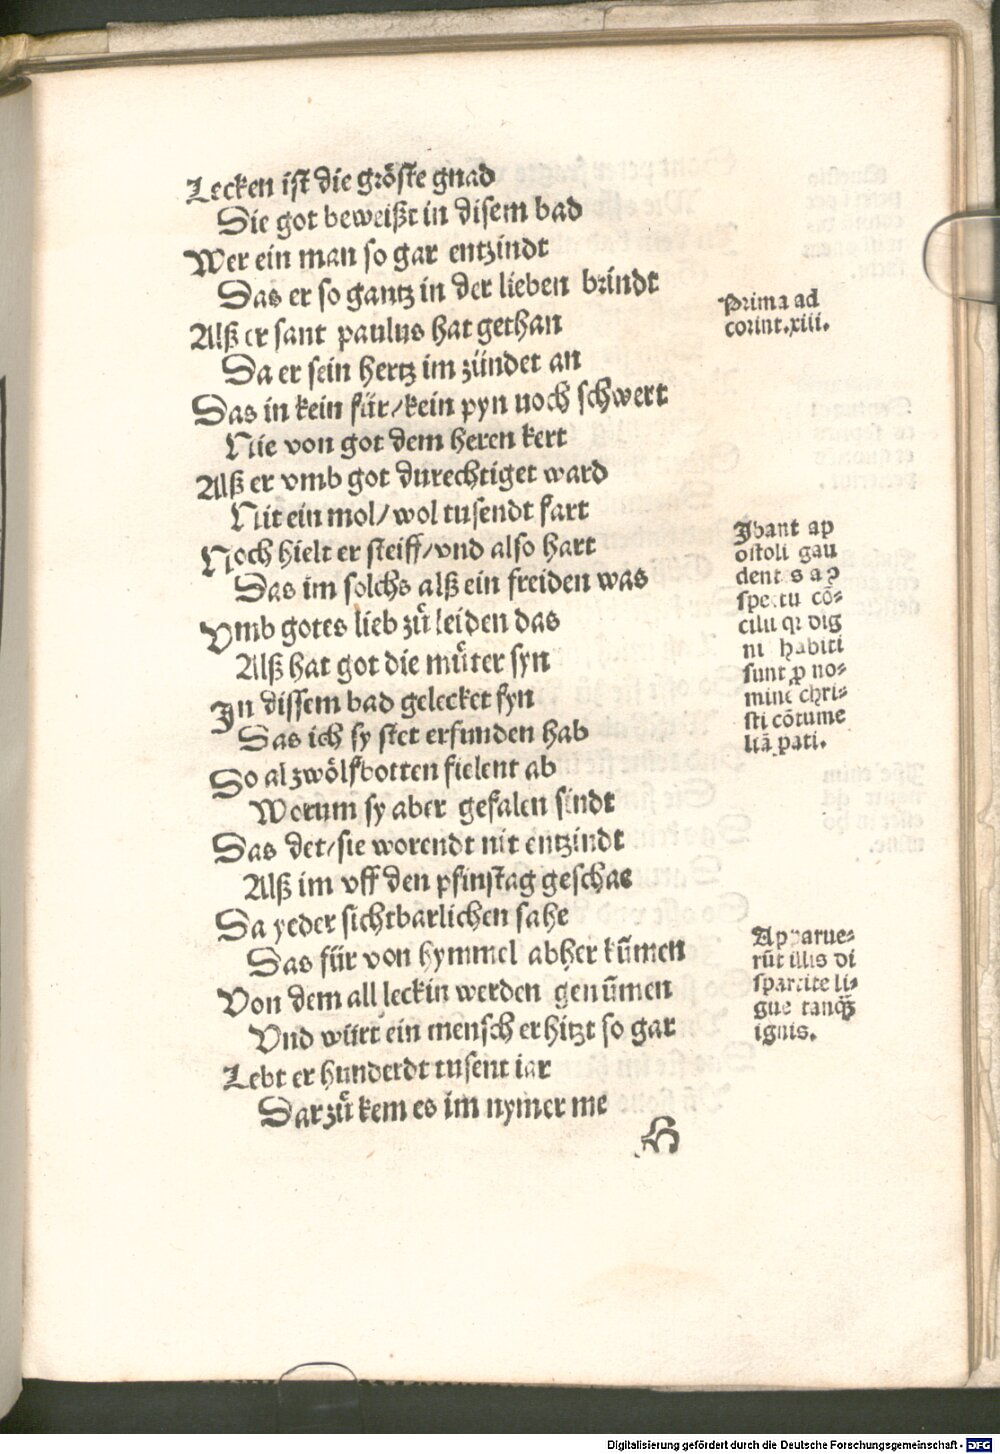 Lecken ist die gröste gnad
Die got beweißt in disem bad
Wer ein man so gar entzindt
Das er so gantz in der lieben brindt
Alß er sant paulus hat gethan
Da er sein hertz im zündet an
Das in kein für/kein pyn noch schwert
Nie von got dem heren kert
Alß er vmb got durechtiget ward
Nit ein mol/wol tusendt fart
Noch hielt er steiff/vnd also hart
Das im solchs alß ein freiden was
Vmb gotes lieb zuͤ leiden das
Alß hat got die muͤter syn
In dissem bad gelecket fyn
Das ich sy stet erfunden hab
So al zwölfbotten fielent ab
Worum sy aber gefalen sindt
Das det/sie worendt nit entzindt
Alß im vff den pfinstag geschae
Da yeder sichtbarlichen sahe
Das für von hymmel abher kūmen
Von dem all leckin werden genūmen
Vnd würt ein mensch erhitzt so gar
Lebt er hunderdt tusent iar
Darzuͤ kem es im nymer me
H
Prima ad
corint.xiii.
Ibant ap
ostoli gau
dentes a ꝯ
spectu cō-
cilii qꝛ dig
ni habiti
sunt ꝓ no-
mine chri-
sti cōtume
liā pati.
Apparue-
rūt illis di
spartite li-
gue tanqͣ̄
ignis.
Digitalisierung gefördert durch die Deutsche Forschungsgemeinschaft - DFG